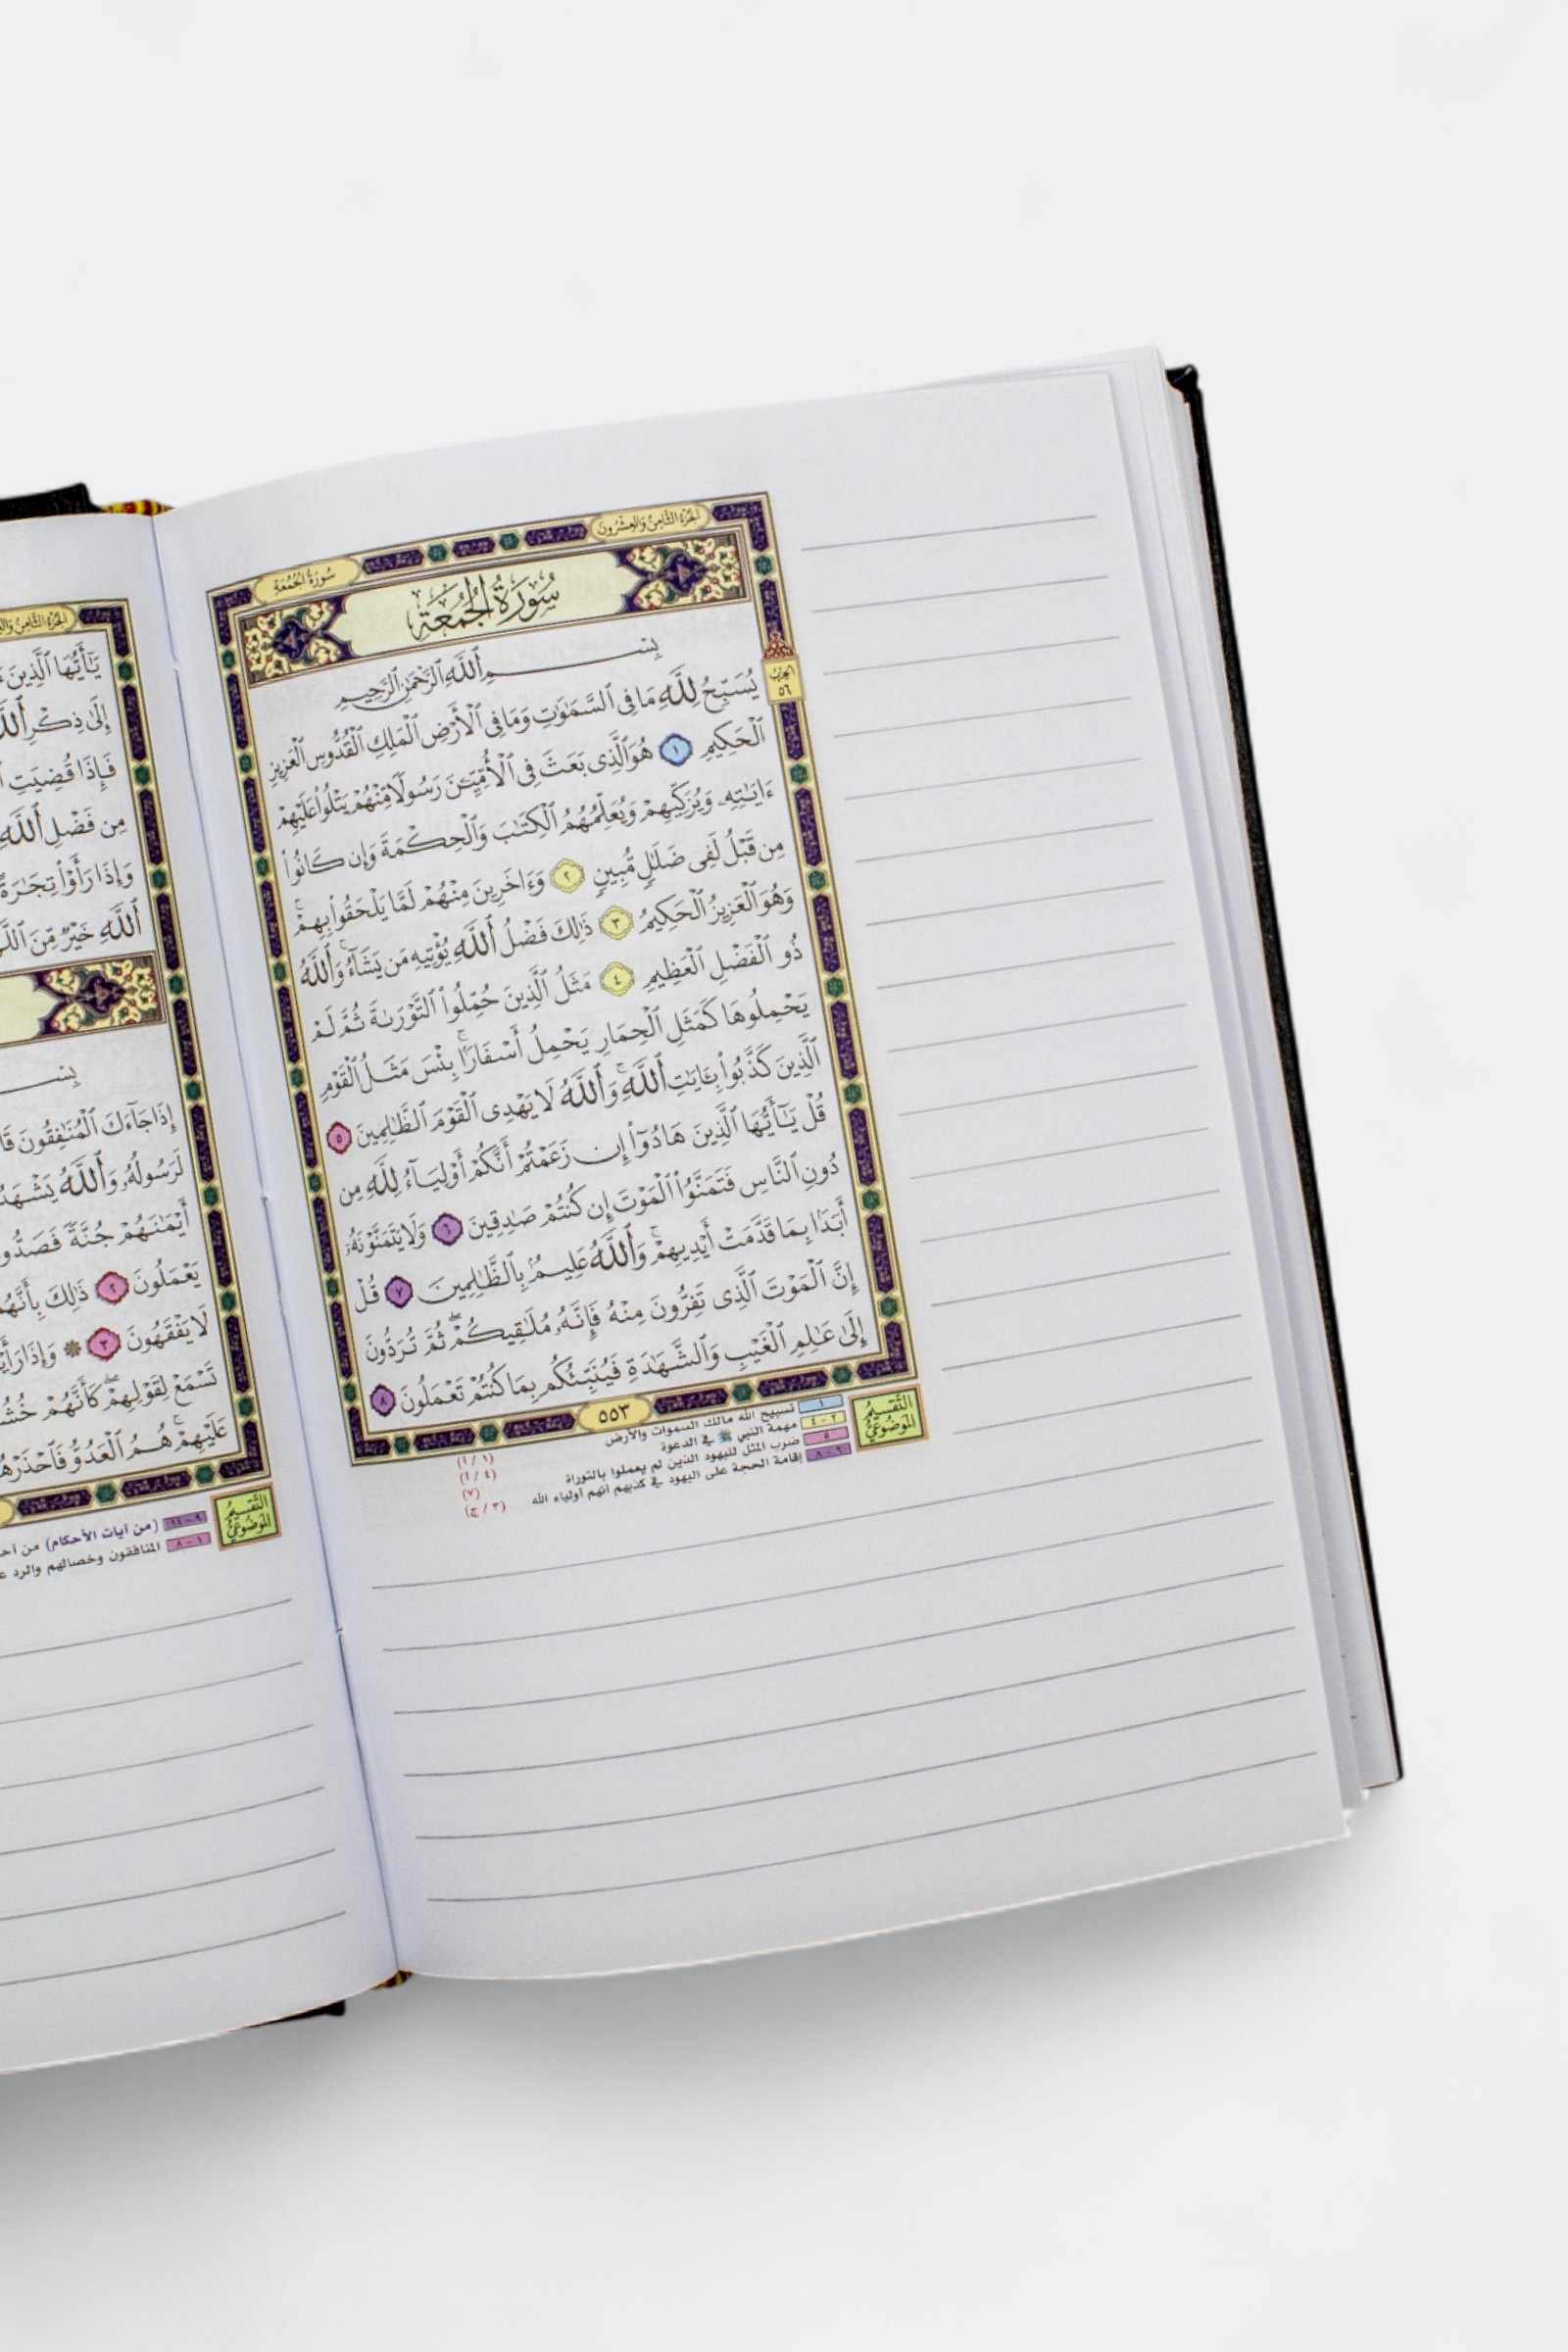 الجزء الثامن والعشرون
سورة الجمعة
سُورَةُ الجُمُعَةِ
بِسْمِ ٱللَّهِ ٱلرَّحْمَٰنِ ٱلرَّحِيمِ
يُسَبِّحُ لِلَّهِ مَا فِى ٱلسَّمَٰوَٰتِ وَمَا فِى ٱلْأَرْضِ ٱلْمَلِكِ ٱلْقُدُّوسِ ٱلْعَزِيزِ
ٱلْحَكِيمِ ١ هُوَ ٱلَّذِى بَعَثَ فِى ٱلْأُمِّيِّـۧنَ رَسُولًا مِّنْهُمْ يَتْلُوا۟ عَلَيْهِمْ
ءَايَٰتِهِۦ وَيُزَكِّيهِمْ وَيُعَلِّمُهُمُ ٱلْكِتَٰبَ وَٱلْحِكْمَةَ وَإِن كَانُوا۟
مِن قَبْلُ لَفِى ضَلَٰلٍ مُّبِينٍ ٢ وَءَاخَرِينَ مِنْهُمْ لَمَّا يَلْحَقُوا۟ بِهِمْ ۚ
وَهُوَ ٱلْعَزِيزُ ٱلْحَكِيمُ ٣ ذَٰلِكَ فَضْلُ ٱللَّهِ يُؤْتِيهِ مَن يَشَآءُ ۚ وَٱللَّهُ
ذُو ٱلْفَضْلِ ٱلْعَظِيمِ ٤ مَثَلُ ٱلَّذِينَ حُمِّلُوا۟ ٱلتَّوْرَىٰةَ ثُمَّ لَمْ
يَحْمِلُوهَا كَمَثَلِ ٱلْحِمَارِ يَحْمِلُ أَسْفَارًۢا ۚ بِئْسَ مَثَلُ ٱلْقَوْمِ
ٱلَّذِينَ كَذَّبُوا۟ بِـَٔايَٰتِ ٱللَّهِ ۚ وَٱللَّهُ لَا يَهْدِى ٱلْقَوْمَ ٱلظَّٰلِمِينَ ٥
قُلْ يَٰٓأَيُّهَا ٱلَّذِينَ هَادُوٓا۟ إِن زَعَمْتُمْ أَنَّكُمْ أَوْلِيَآءُ لِلَّهِ مِن
دُونِ ٱلنَّاسِ فَتَمَنَّوُا۟ ٱلْمَوْتَ إِن كُنتُمْ صَٰدِقِينَ ٦ وَلَا يَتَمَنَّوْنَهُۥٓ
أَبَدًۢا بِمَا قَدَّمَتْ أَيْدِيهِمْ ۚ وَٱللَّهُ عَلِيمٌۢ بِٱلظَّٰلِمِينَ ٧ قُلْ
إِنَّ ٱلْمَوْتَ ٱلَّذِى تَفِرُّونَ مِنْهُ فَإِنَّهُۥ مُلَٰقِيكُمْ ۖ ثُمَّ تُرَدُّونَ
إِلَىٰ عَٰلِمِ ٱلْغَيْبِ وَٱلشَّهَٰدَةِ فَيُنَبِّئُكُم بِمَا كُنتُمْ تَعْمَلُونَ ٨
الحزب
٥٦
٥٥٣
التقسيم
الموضوعي
١ تسبيح الله مالك السموات والأرض (١ / أ)
٢ - ٤ مهمة النبي ﷺ في الدعوة (٤ / أ)
٥ ضرب المثل لليهود الذين لم يعملوا بالتوراة (٧)
٦ - ٨ إقامة الحجة على اليهود في كذبهم أنهم أولياء الله (٣ / ج)
يَٰٓأَيُّهَا ٱلَّذِينَ
إِلَىٰ ذِكْرِ ٱللَّهِ
فَإِذَا قُضِيَتِ
مِن فَضْلِ ٱللَّهِ
وَإِذَا رَأَوْا۟ تِجَٰرَةً
ٱللَّهِ خَيْرٌ مِّنَ
إِذَا جَآءَكَ ٱلْمُنَٰفِقُونَ
لَرَسُولُهُۥ وَٱللَّهُ يَشْهَدُ
أَيْمَٰنَهُمْ جُنَّةً
يَعْمَلُونَ ٢ ذَٰلِكَ بِأَنَّهُمْ
لَا يَفْقَهُونَ ٣ ۞ وَإِذَا
تَسْمَعْ لِقَوْلِهِمْ ۖ كَأَنَّهُمْ
عَلَيْهِمْ ۚ هُمُ ٱلْعَدُوُّ
التقسيم
الموضوعي
٩ - ١١ (من آيات الأحكام) من
١ - ٨ المنافقون وخصالهم والرد